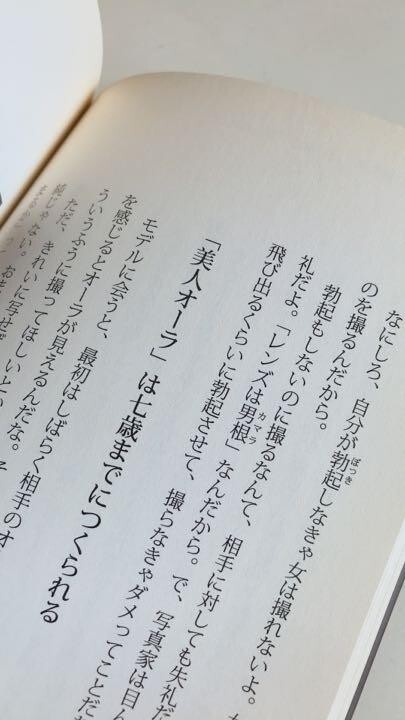 なにしろ、自分が勃起しなきゃ女は撮れないよ。
のを撮るんだから。
勃起もしないのに撮るなんて、相手に対しても失
礼だよ。「レンズは男根」なんだから。で、写真家は目ん
飛び出るくらいに勃起させて、撮らなきゃダメってことだ
「美人オーラ」は七歳までにつくられる
モデルに会うと、最初はしばらく相手のオ
を感じるとオーラが見えるんだな。そ
ういうふうに撮ってほしいとい
ただ、きれいに写せば
純じゃない。